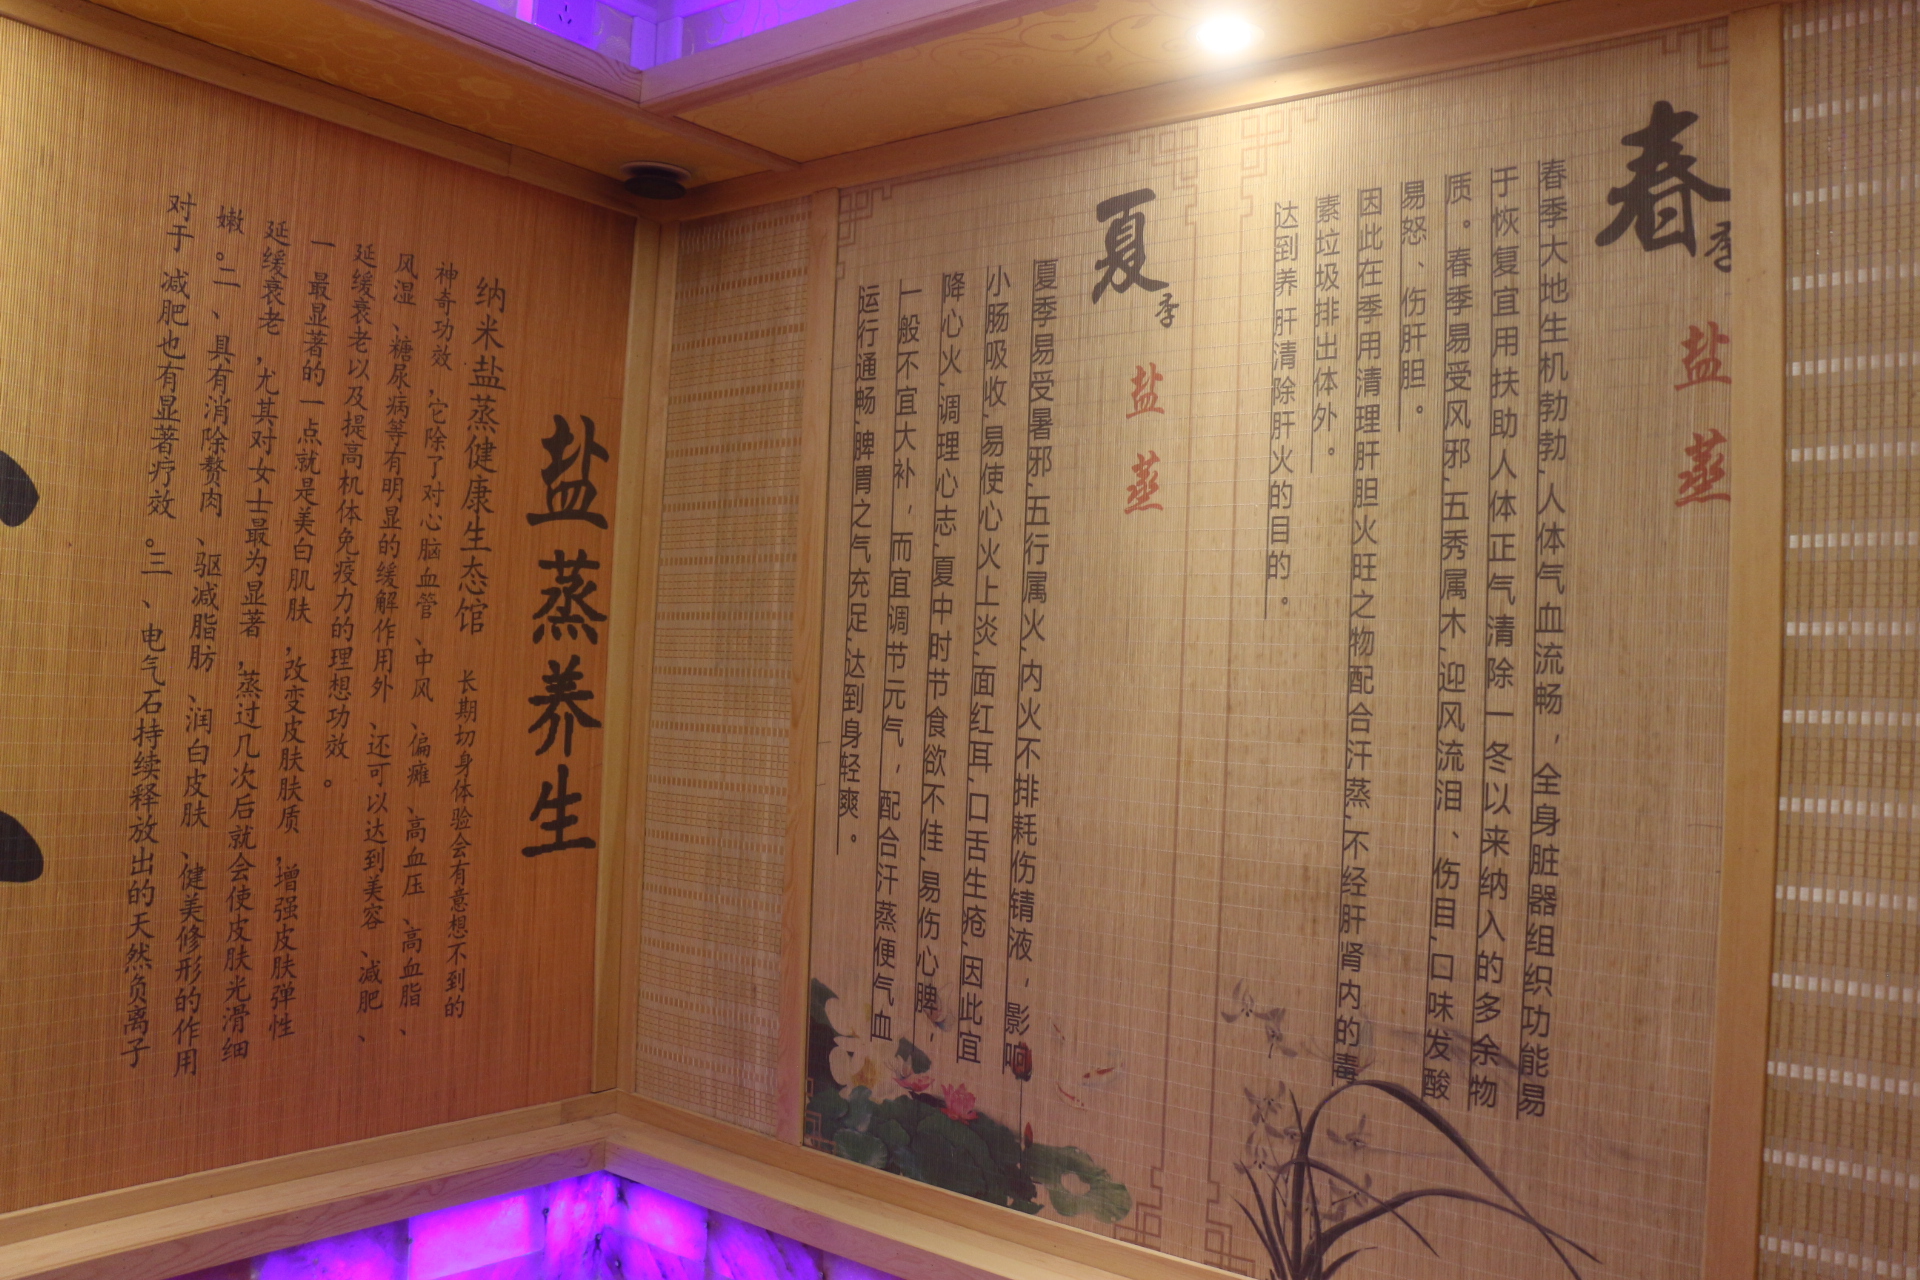 春季
盐蒸
春季大地生机勃勃、人体气血流畅，全身脏器组织功能易
于恢复宜用扶助人体正气清除一冬以来纳入的多余物
质。春季易受风邪、五秀属木、迎风流泪、伤目、口味发酸
易怒、伤肝胆。
因此在季用清理肝胆火旺之物配合汗蒸、不经肝肾内的毒
素垃圾排出体外。
达到养肝清除肝火的目的。
夏季
盐蒸
夏季易受暑邪、五行属火、内火不排耗伤锖液，影响
小肠吸收、易使心火上炎、面红耳、口舌生疮、因此宜
降心火、调理心志、夏中时节食欲不佳、易伤心脾，
一般不宜大补，而宜调节元气，配合汗蒸便气血
运行通畅、脾胃之气充足、达到身轻爽。
盐蒸养生
纳米盐蒸健康生态馆 长期切身体验会有意想不到的
神奇功效，它除了对心脑血管、中风、偏瘫、高血压、高血脂、
风湿、糖尿病等有明显的缓解作用外、还可以达到美容、减肥、
延缓衰老以及提高机体免疫力的理想功效。
一 最显著的一点就是美白肌肤，改变皮肤肤质，增强皮肤弹性
延缓衰老，尤其对女士最为显著，蒸过几次后就会使皮肤光滑细
嫩。二、具有消除赘肉、驱减脂肪、润白皮肤、健美修形的作用
对于 减肥也有显著疗效。三、电气石持续释放出的天然负离子